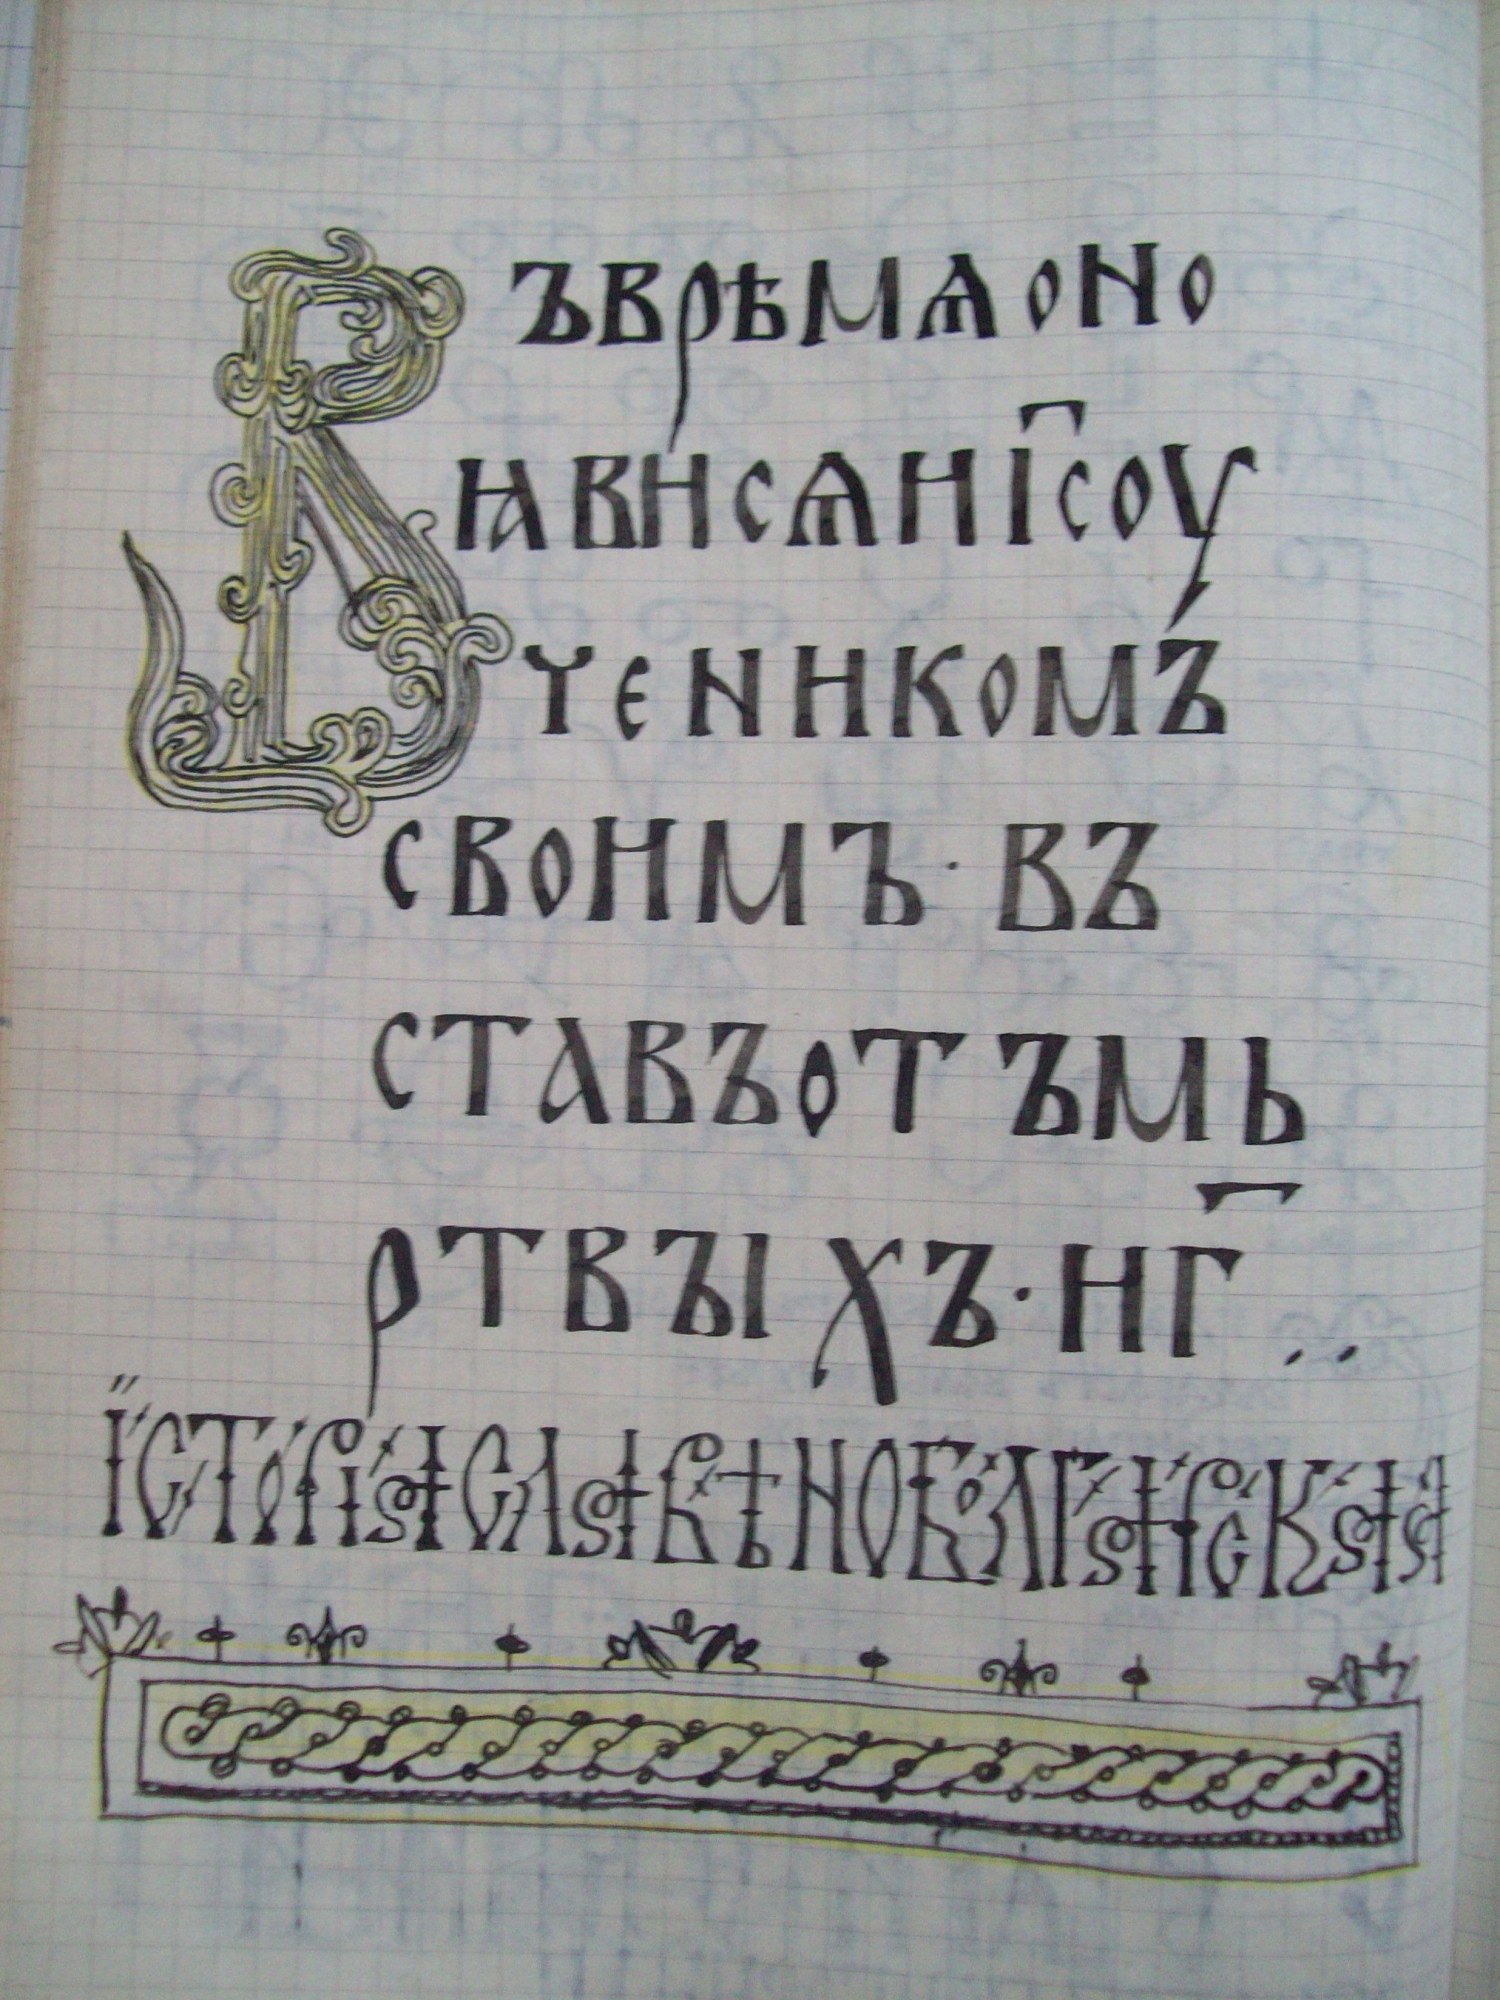 Въврѣмѧоно
ꙗвисѧиі҃соу
ченикомъ
своимъ·въ
ставъотъмь
ртвꙑхъ·иг҃..
Їсторіаславѣноболгарскаа